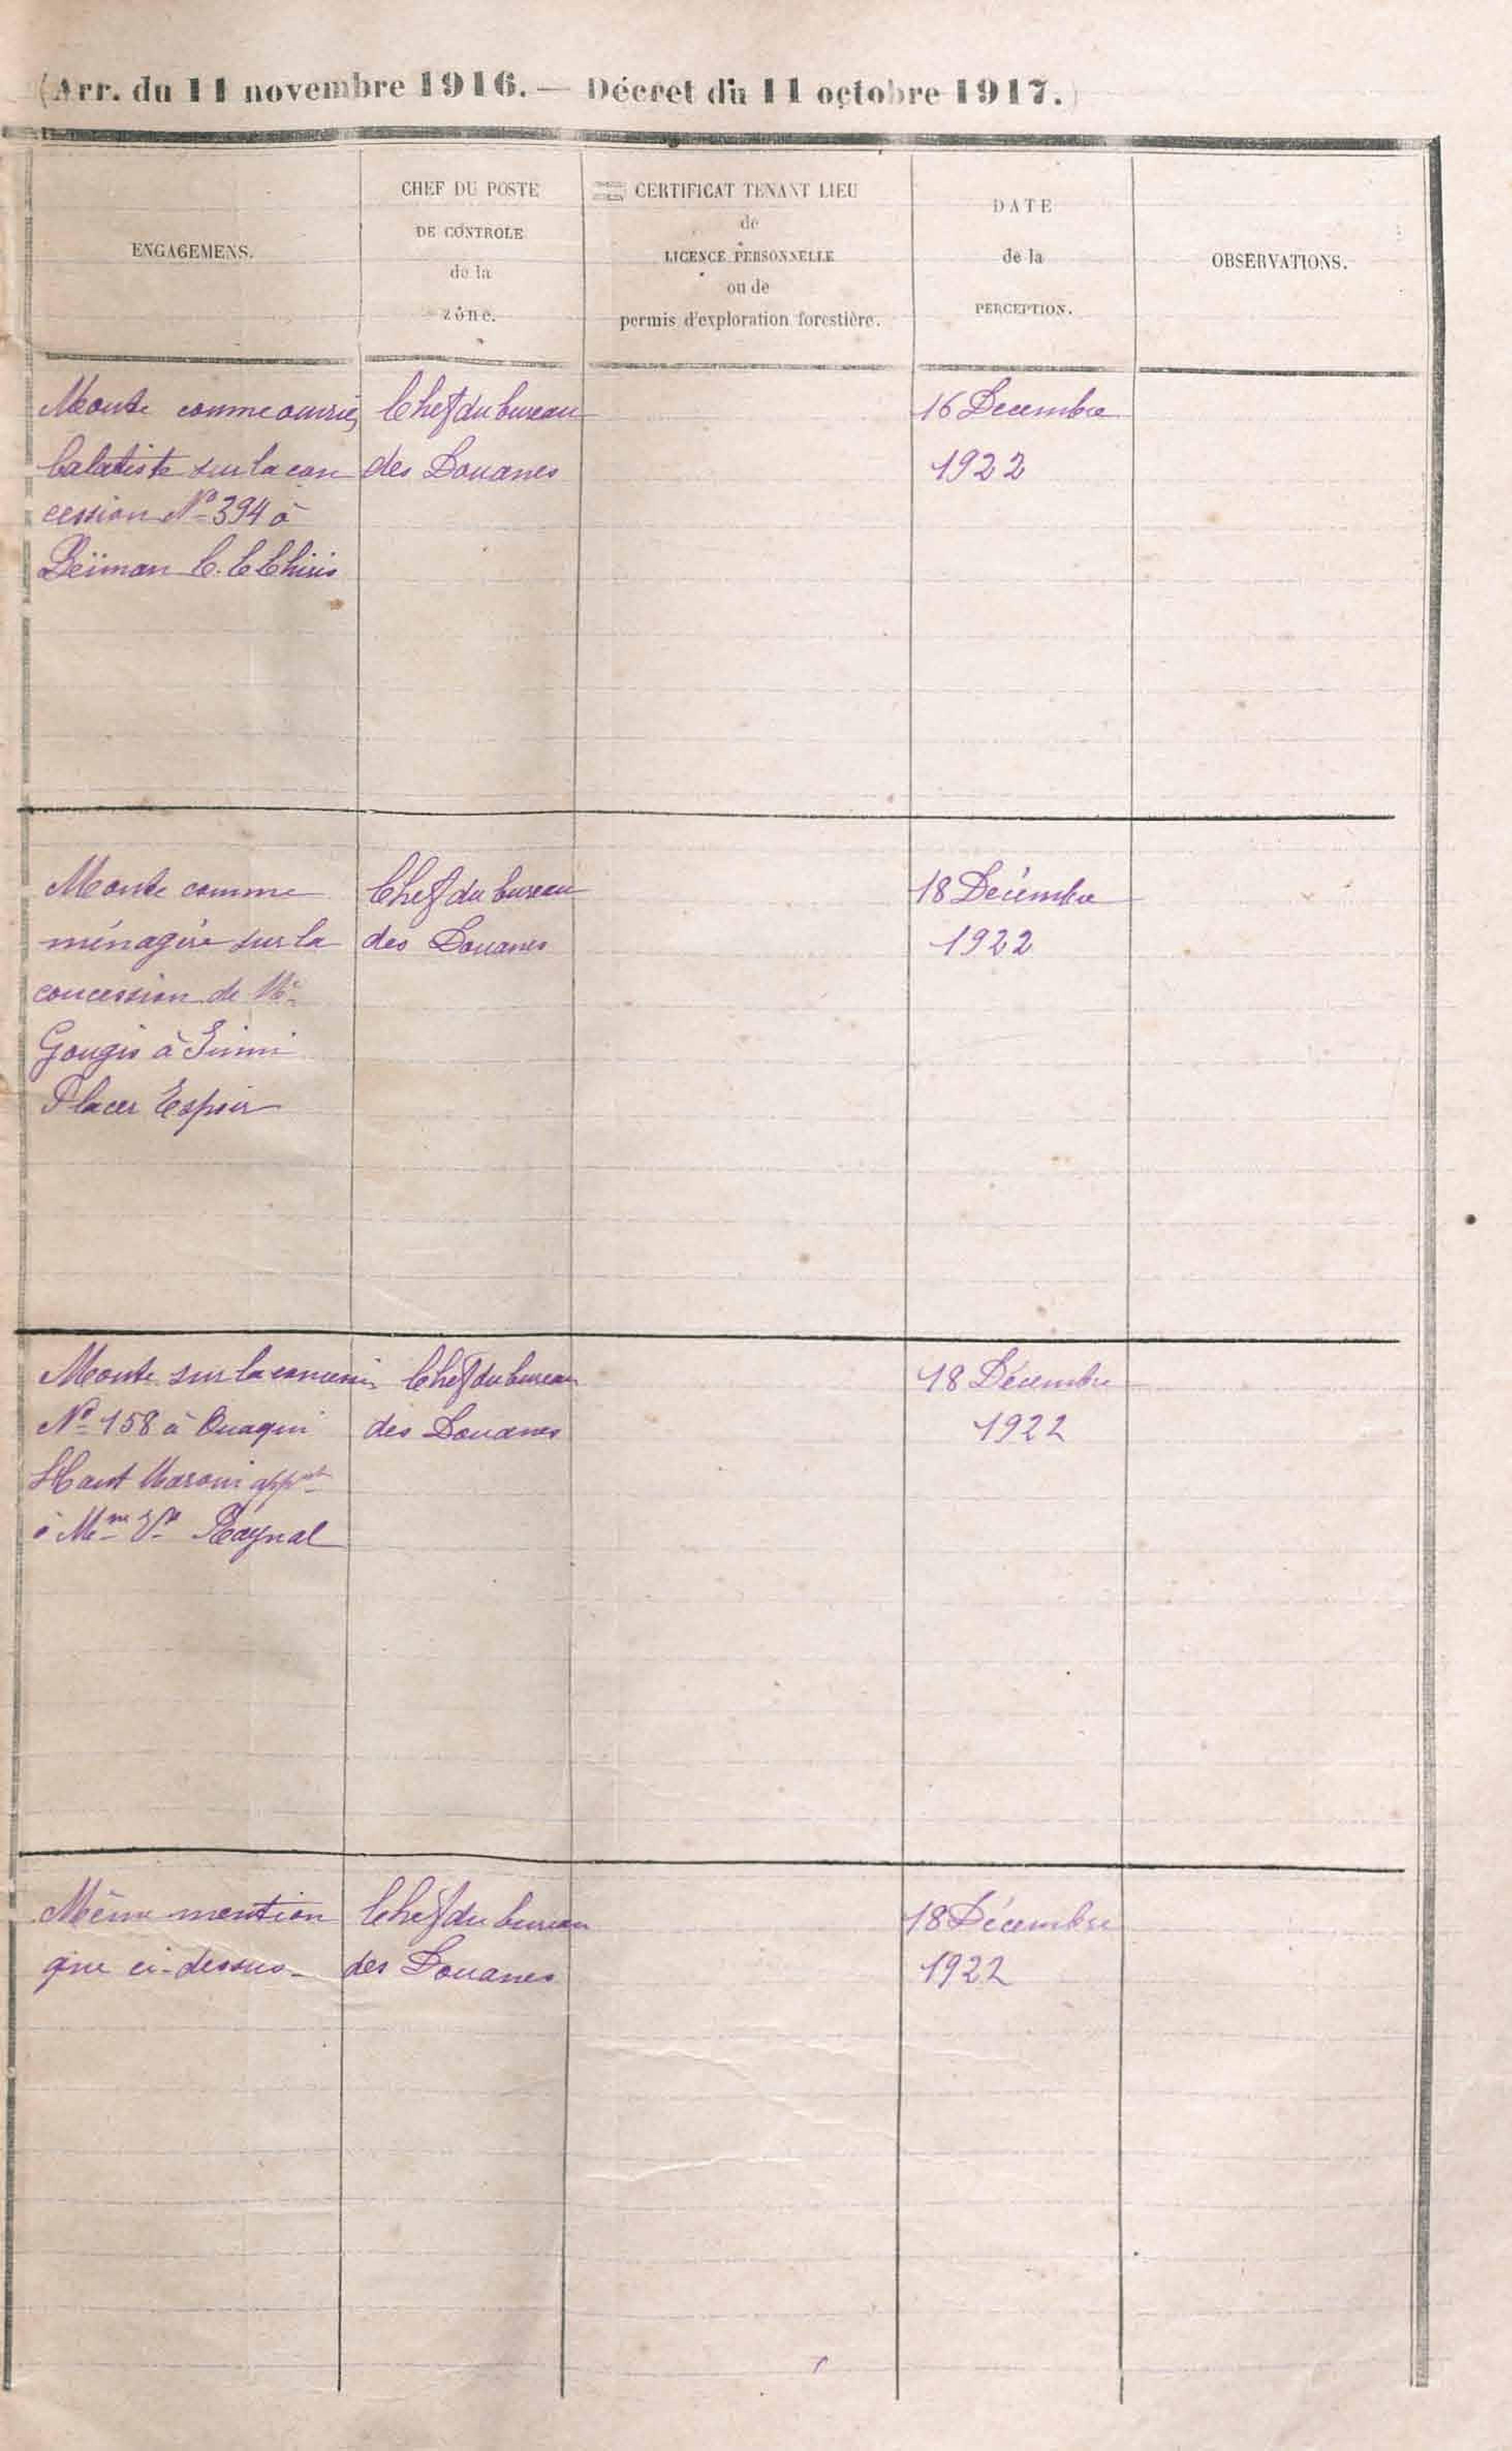 (Arr. du 11 novembre 1916. — Décret du 11 octobre 1917.)
ENGAGEMENS.
CHEF DU POSTE
DE CONTROLE
de la
zône.
CERTIFICAT TENANT LIEU
de
LICENCE PERSONNELLE
ou de
permis d'exploration forestière.
DATE
de la
PERCEPTION.
OBSERVATIONS.
Monte comme ouvrier
balatiste sur la con
cession No 394 à
Beïman C. C Chiris
Chef du bureau
des Douanes
16 Decembre
1922
Monte comme
ménagère sur la
concession de Mr
Gougis à Inini
Placer Espoir
Chef du bureau
des Douanes
18 Décembre
1922
Monte sur la concession
No 158 à Ouaqui
Haut Maroni appnt
à Mme Ve Raynal
Chef du bureau
des Douanes
18 Décembre
1922
Même mention
que ci-dessus
Chef du bureau
des Douanes
18 Décembre
1922